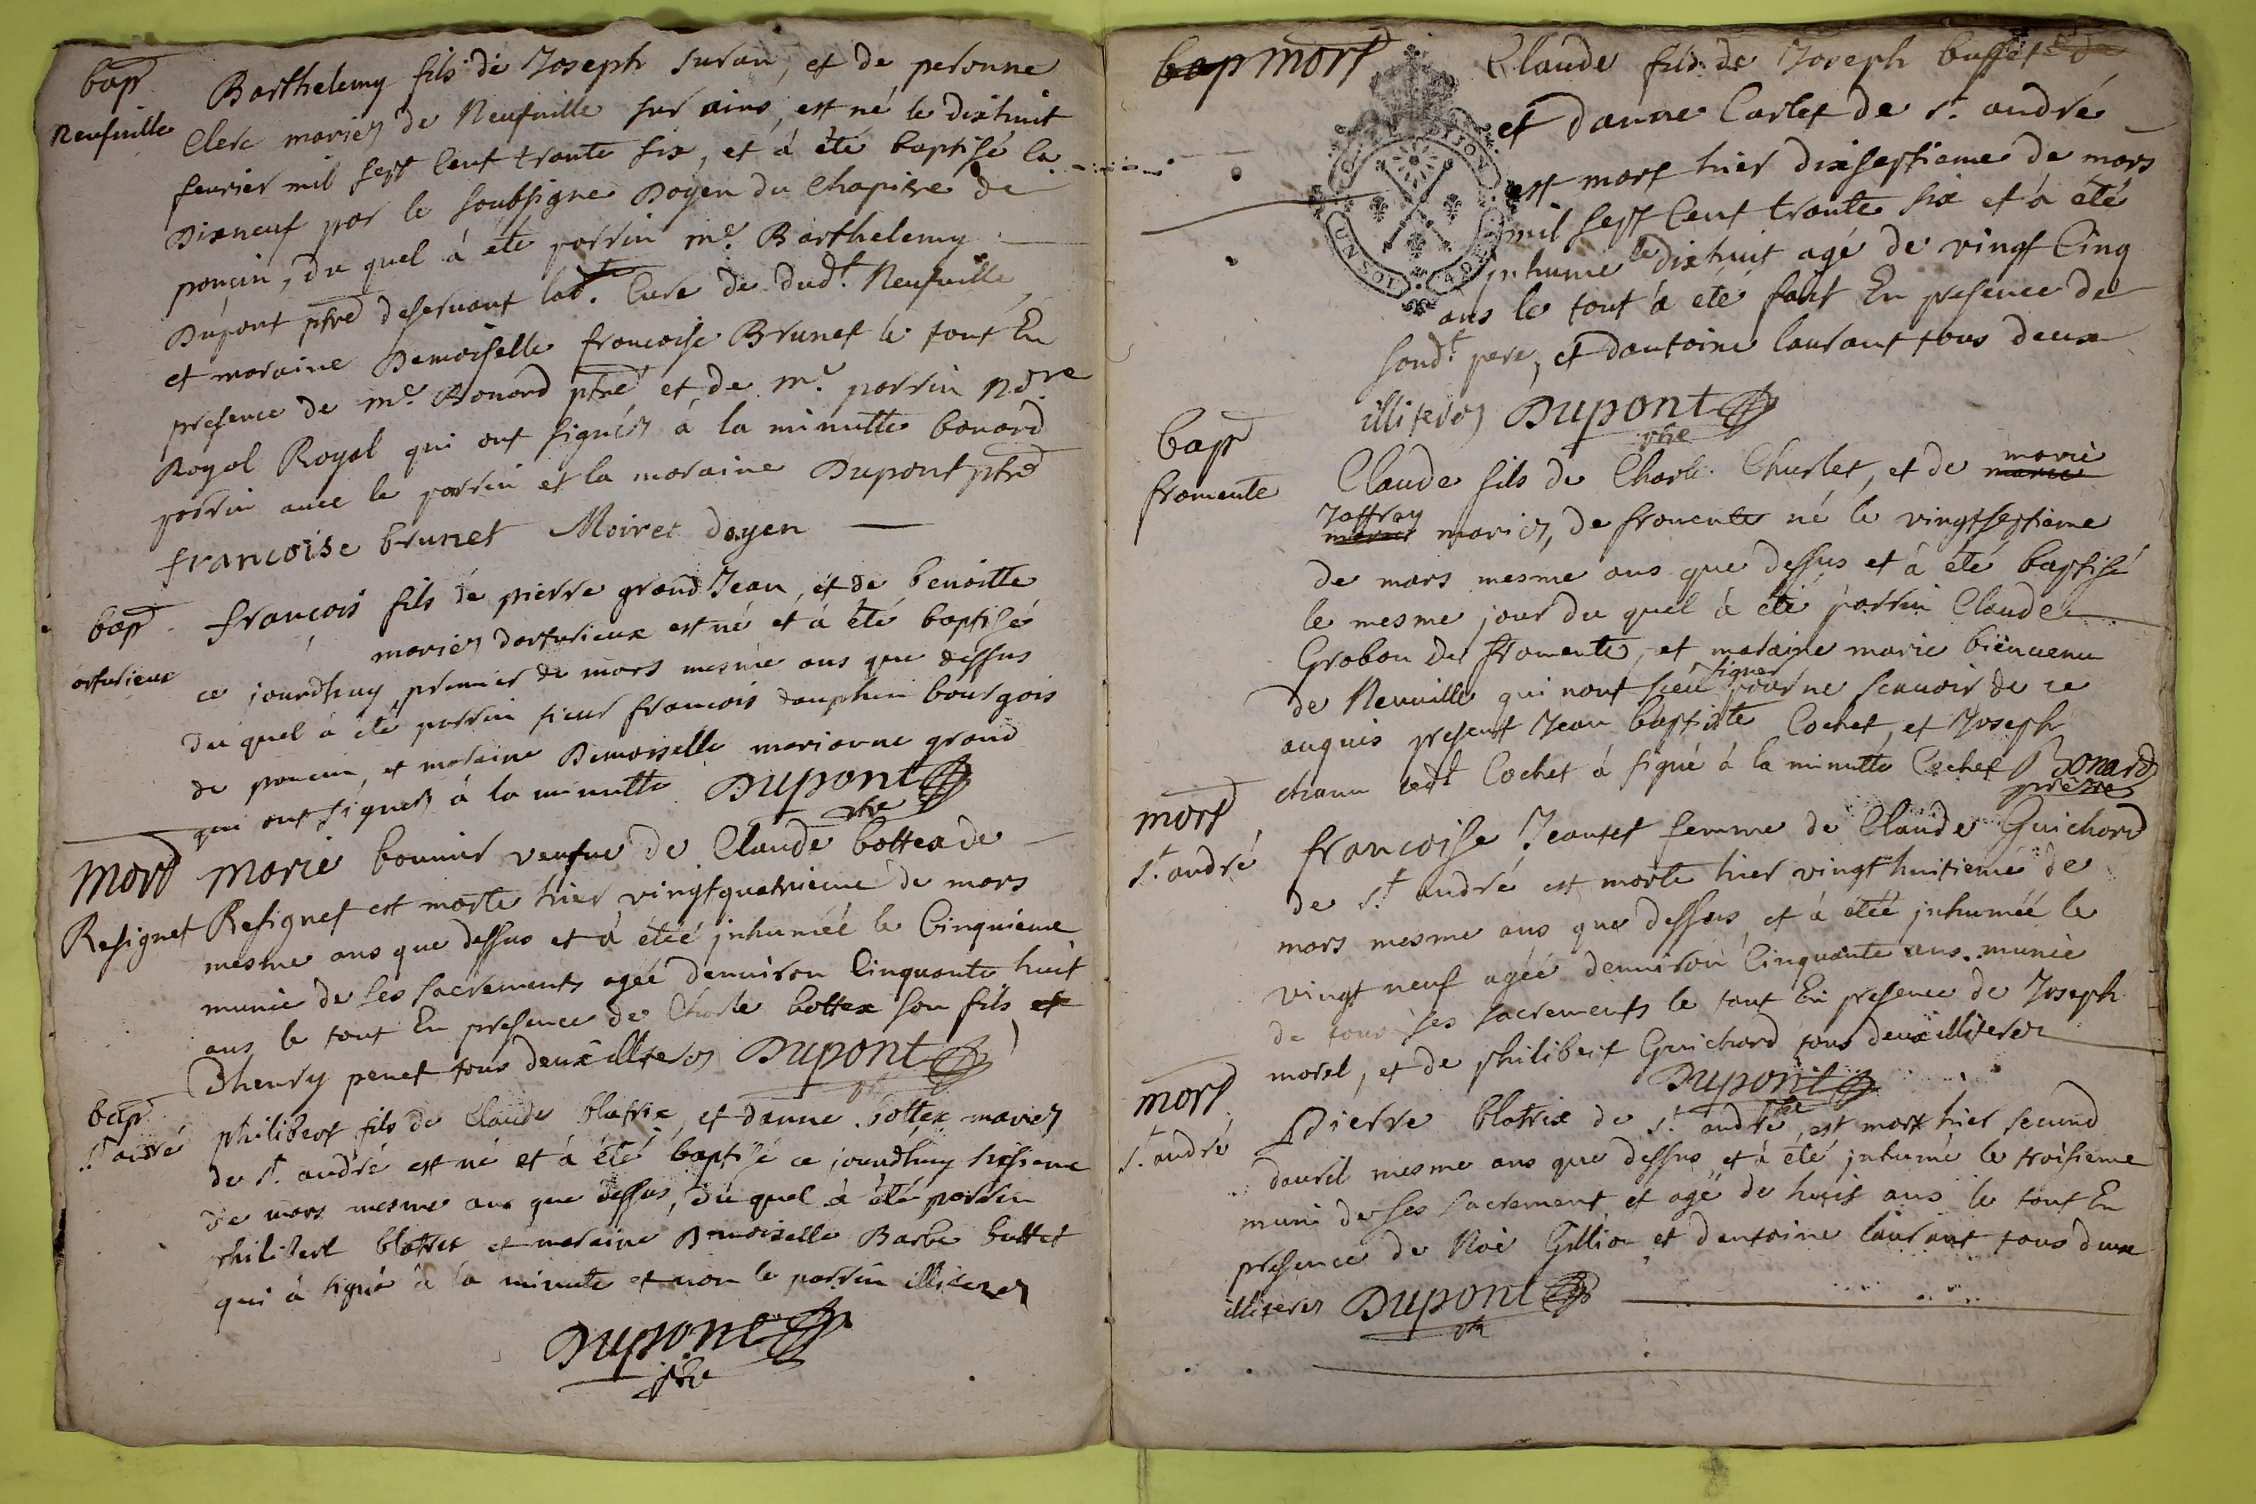 bap
Neufville
Barthelemy fils de Joseph suran, et de peronne
Clerc mariez de Neufville sur ains, est né le dixhuit
feurier mil sept Cent trante six, et à été baptisé le
Dixneuf par le soubsigne Doyen du Chapitre de
poncin, du quel à été parrin mr. Barthelemy
Dupont ptre deseruant lad. Cure de dud.t Neufuille
et maraine Demoiselle francoise Brunet le tout En
presence de mr. Bonard ptre et de mr. parrin
Royal Royal qui ont signéz à la minutte bonard
parrin auec le parrin et la maraine Dupont ptre
francoise brunet Moiret doyen
bap
orfurieux
francois fils de pierre grand Jean, et de benoitte
mariez dorfurieux est né et à été baptisé
ce jourdhuy premier de mars mesme ans que dessus
du quel à été parrin sieur francois dauphin bourgois
de poncin, et maraine Demoiselle marianne grand
qui ont signez à la minutte Dupont
ptre
mort
Resignet
Marie bounir veufue de Claude bottex de
Resignet est morte hier vingtquatrieme de mars
mesme ans que dessus et à étéé jnhuméé le Cinquieme
munie de ses sacrements agée denuiron Cinquante huit
ans le tout En presence de Charle bottex son fils et
Dhenry penet tous deux illiterez Dupont
bap
st andré
philibert fils de Claude blatrix, et danne bottex mariez
de st. andré est né et à été baptisé ce jourdhuy sixsieme
de mars mesme ans que dessus, du quel à été parrin
philibert blatrix et maraine Demoiselle Barbe buttet
qui à signé à la minute et non le parrin illiterez
Dupont
ptre
bap mort
Claude fils de Joseph buffet
et danne Carlet de st. andré
est mort hier dixseptieme de mars
mil sept Cent trante six et à été
jnhumé le dixhuit agé de vingt Cinq
ans le tout à été fait En presence de
sond.t pere, et dantoine laurant tous deux
illiterez Dupont
ptre
bap
fromente
Claude fils de Charle Churlet, et de marie
marie
Jaffray
mariez, de fromente né le vingtseptieme
de mars mesme ans que dessus et à été baptisé
le mesme jour du quel à été parrin Claude
Grobon de fromente, et maraine marie bienuenu
signer
de Neuuille qui nont sceu pour ne scauoir de ce
anquis present Jean baptiste Cochet, et Joseph
led.t Cochet à signé à la minutte Cochet Bonard
prêtre
mort
st. andré
francoisse Jeantet femme de Claude Guichard
de st. andré est morte hier vingt huitieme de
mars mesme ans que dessus et à étéé jnhuméé le
vingt neuf agéé denuiron Cinquante ans. munie
de tous ses sacrements le tout En presence de Joseph
morel, et de philibert Guichard tous deux illiterez
Dupont
ptre
mort
st. andré
Pierre blatrix de st. andré est mort hier second
dauril mesme ans que dessus et à été jnhumé le troisieme
muni de ses sacrement et agé de huit ans le tout En
presence de Noé Gillion et dantoine laurant tous deux
illiterez Dupont
ptre